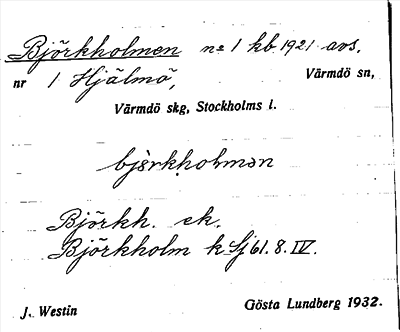 Björkholmen nr 1 kb 1921 avs.
nr 1 Hjälmö, Värmdö sn,
Värmdö skg, Stockholms l.
bjèrkholmən
Björkh. ek.
Björkholm k Sj 61. 8. IV.
J. Westin Gösta Lundberg 1932.